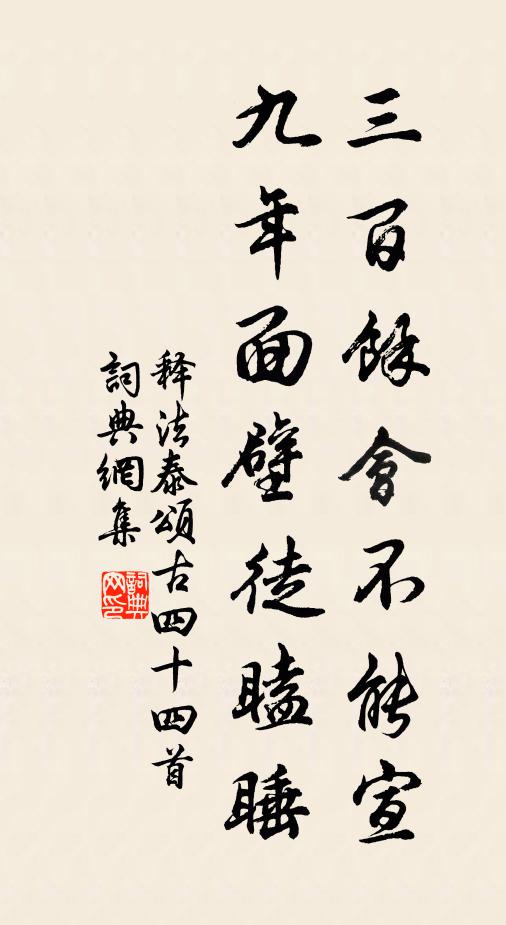 三百餘會不能宣
九年面壁徒瞌睡
释法泰頌古四十四首
詞典網集
詞典
网印